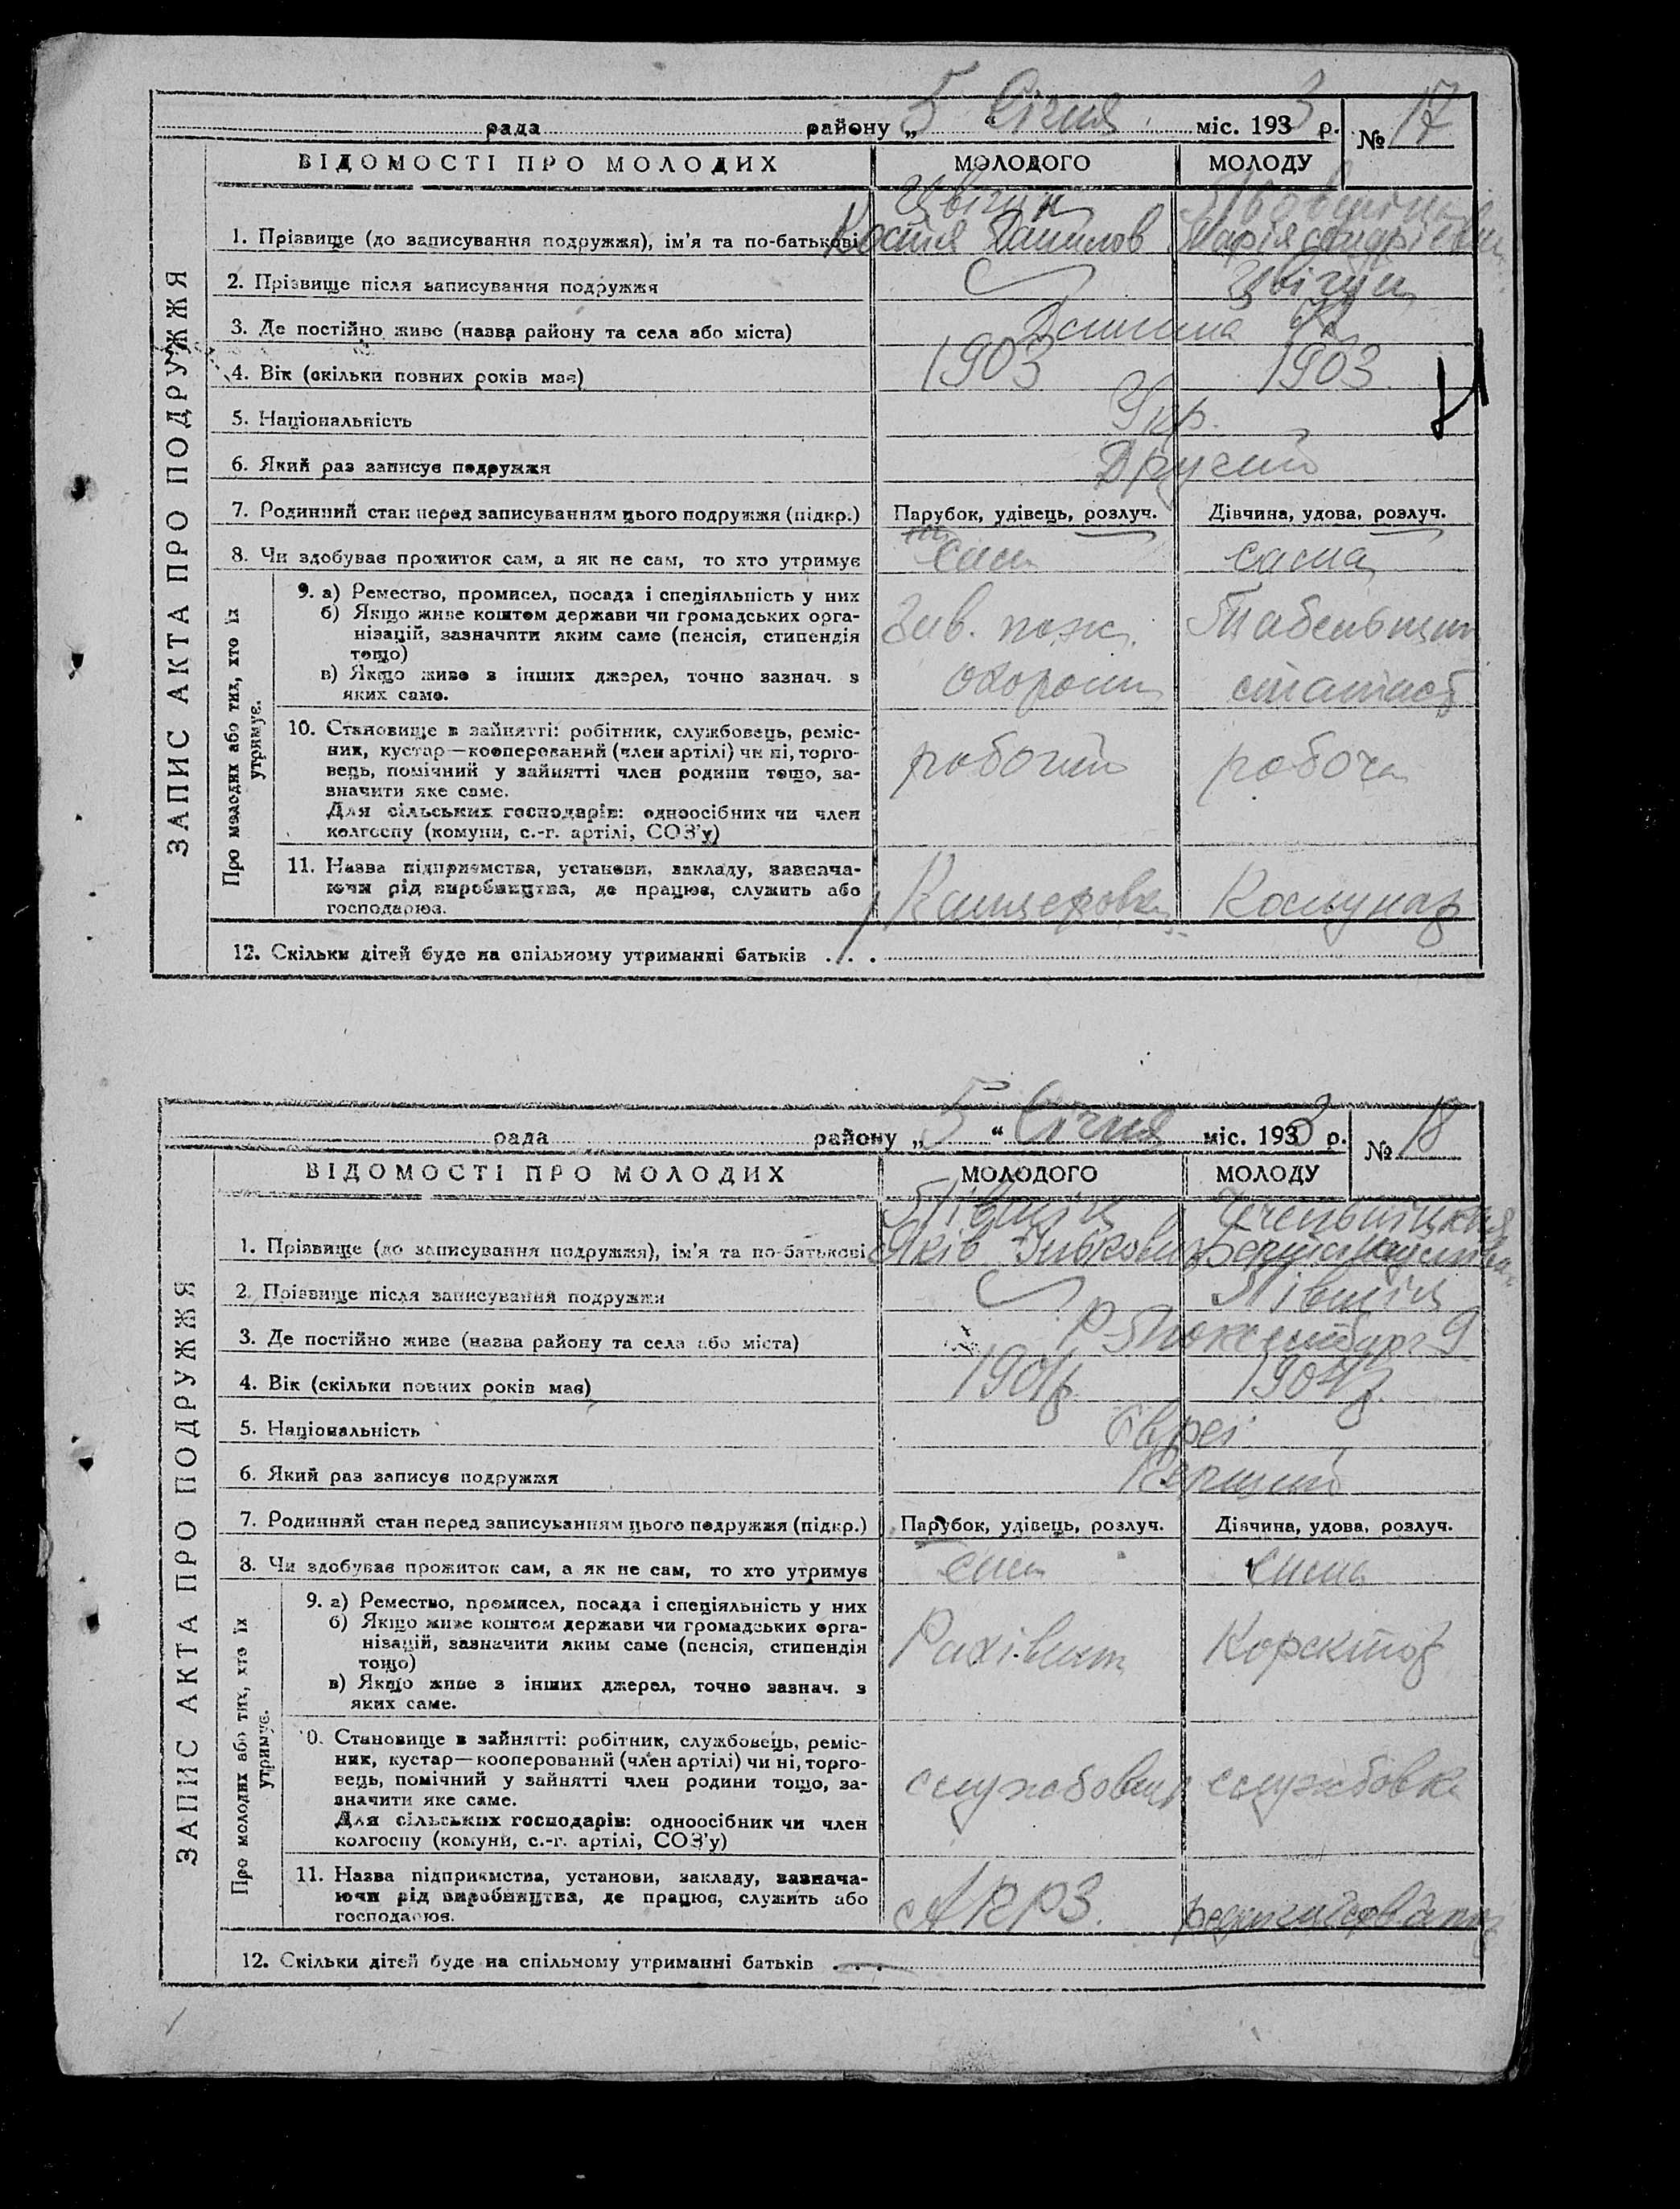 рада района „5“ Січня міс. 1933 р. № 17
ЗАПИС АКТА ПРО ПОДРУЖЖЯ
ВІДОМОСТІ ПРО МОЛОДИХ МОЛОДОГО МОЛОДУ
Цвігун
1. Прізвище (до записування подружжя), ім'я та по-батькові Костя Данилов Марія Андрієвна
2. Прізвище після записування подружжя Цвігун
3. Де постійно живе (назва району та села або міста)
4. Вік (скільки повних років має) 1903 1903
5. Національність Укр.
6. Який раз записує подружжя Другий
7. Родинний стан перед записуванням цього подружжя (підкр.) Парубок, удівець, розлуч. Дівчина, удова, розлуч.
8. Чи здобував прожиток сам, а як не сам, то хто утримує сам сама
Про молодих або тих, хто їх утримує.
9. а) Ремество, промисел, посада і спеціяльність у них
б) Якщо живе коштом держави чи громадських орга-
нізацій, зазначити яким саме (пенсія, стипендія
тощо)
в) Якщо живе з інших джерел, точно зазнач. з
яких саме.
Зав. пож. охорони
Табельщик статист
10. Становище в зайнятті: робітник, службовець, реміс-
ник, кустар—кооперований (член артілі) чи ні, торго-
вець, помічний у зайнятті член родини тощо, за-
значити яке саме.
Для сільських господарів: одноосібник чи член
колгоспу (комуни, с.-г. артілі, СОЗ'у)
робочий робоча
11. Назва підприємства, установи, закладу, зазнача-
ючи рід виробництва, де працює, служить або
господарює.
Комунар
12. Скільки дітей буде на спільному утриманні батьків . . .
рада району „5“ Січня міс. 1933 р. № 18
ЗАПИС АКТА ПРО ПОДРУЖЖЯ
ВІДОМОСТІ ПРО МОЛОДИХ МОЛОДОГО МОЛОДУ
Півшіц Чечельницкая
1. Прізвище (до записування подружжя), ім'я та по-батькові Яків Берта
2. Прізвище після записування подружжя Півшіц
3. Де постійно живе (назва району та села або міста) Р. Люксембург 9
4. Вік (скільки повних років має) 1904р. 1904р.
5. Національність Євреї
6. Який раз записує подружжя Перший
7. Родинний стан перед записуванням цього подружжя (підкр.) Парубок, удівець, розлуч. Дівчина, удова, розлуч.
8. Чи здобував прожиток сам, а як не сам, то хто утримує сам сама
Про молодих або тих, хто їх утримує.
9. а) Ремество, промисел, посада і спеціяльність у них
б) Якщо живе коштом держави чи громадських орга-
нізацій, зазначити яким саме (пенсія, стипендія
тощо)
в) Якщо живе з інших джерел, точно зазнач. з
яких саме.
Рахівник Коректор
0. Становище в зайнятті: робітник, службовець, реміс-
ник, кустар—кооперований (член артілі) чи ні, торго-
вець, помічний у зайнятті член родини тощо, за-
значити яке саме.
Для сільських господарів: одноосібник чи член
колгоспу (комуни, с.-г. артілі, СОЗ'у)
службовець службовка
11. Назва підприємства, установи, закладу, зазнача-
ючи рід виробництва, де працює, служить або
господарює.
АРРЗ.
12. Скільки дітей буде на спільному утриманні батьків . . .